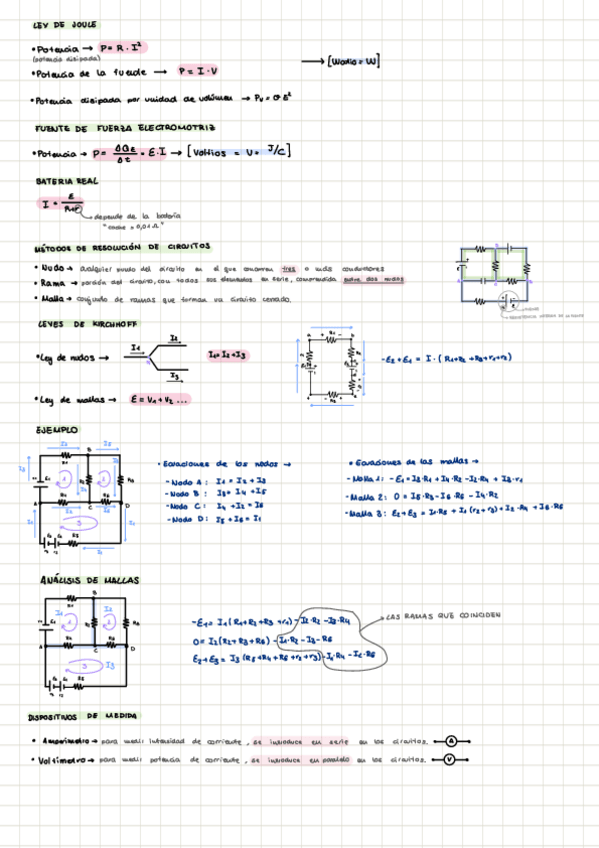 LEY DE JOULE
• Potencia → P = R · I²
(potencia disipada)
→ [Watio = W]
• Potencia de la fuente → P = I · V
• Potencia disipada por unidad de volumen → Pv = σ E²
FUENTE DE FUERZA ELECTROMOTRIZ
• Potencia → P = ΔQε/Δt = ε · I → [Voltios = V = J/C]
BATERIA REAL
I = ε/R+r
depende de la batería
"coche = 0,01 Ω"
MÉTODOS DE RESOLUCIÓN DE CIRCUITOS
• Nudo → cualquier punto del circuito en el que concurren tres o más conductores
• Rama → porción del circuito, con todos sus elementos en serie, comprendida entre dos nudos
• Malla → conjunto de ramas que forman un circuito cerrado.
LEYES DE KIRCHHOFF
• Ley de nudos →
I1
I2
I3
I1 = I2 + I3
-E2 + E1 = I · (R1+R2+R3+r1+r2)
• Ley de mallas → E = V1 + V2 ...
EJEMPLO
• Ecuaciones de los nodos →
- Nodo A: I1 = I2 + I3
- Nodo B: I3 = I4 + I5
- Nodo C: I4 + I2 = I6
- Nodo D: I5 + I6 = I1
• Ecuaciones de las mallas →
- Malla 1: -E1 = I3·R1 + I4·R2 - I2·R4 + I3·r1
- Malla 2: 0 = I5·R3 - I6·R6 - I4·R2
- Malla 3: E2 + E3 = I1·R5 + I1 (r2+r3) + I2·R4 + I6·R6
ANÁLISIS DE MALLAS
-E1 = I1 (R1+R2+R3+r1) - I2·R2 - I3·R4
LAS RAMAS QUE COINCIDEN
0 = I2 (R2+R3+R6) - I1·R2 - I3·R6
E2 + E3 = I3 (R5+R4+R6+r2+r3) - I1·R4 - I2·R6
DISPOSITIVOS DE MEDIDA
• Amperímetro → para medir intensidad de corriente, se introduce en serie en los circuitos. A
• Voltímetro → para medir potencia de corriente, se introduce en paralelo en los circuitos. V